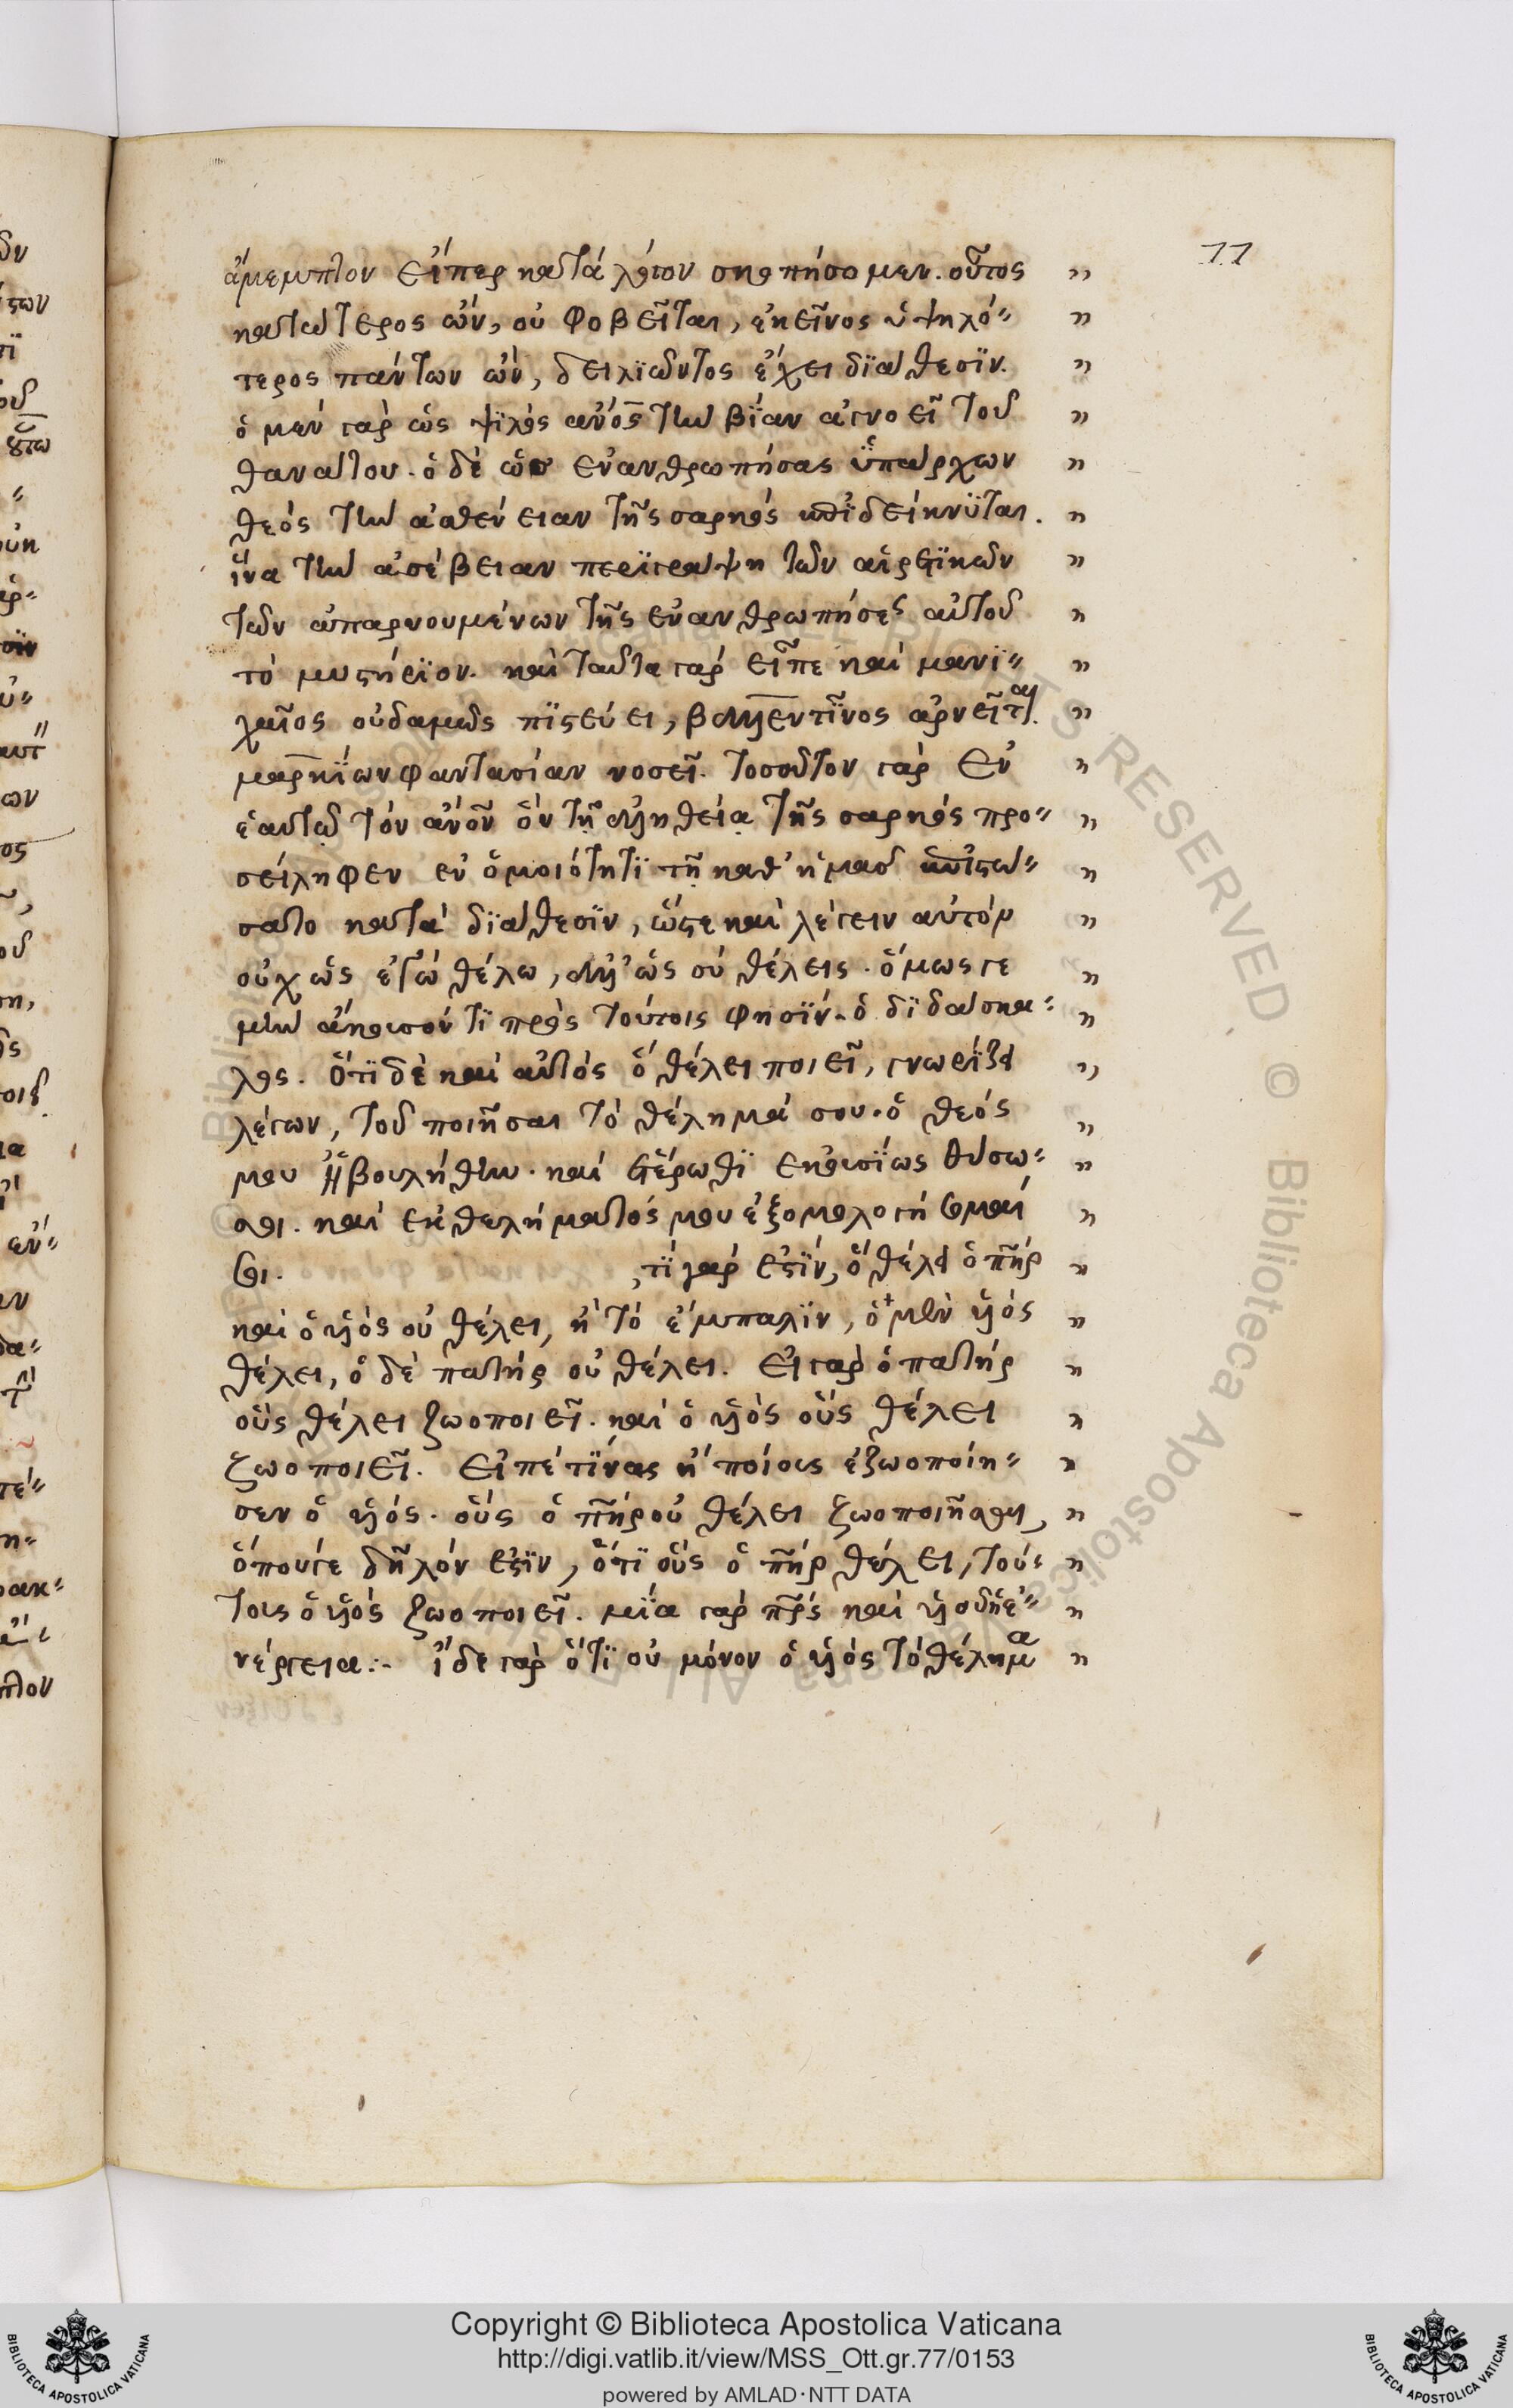 77
ἄμεμπτον εἴπερ κατὰ λόγον σκοπήσομεν. οὗτος "
κατώτερος ὢν, οὐ φοβεῖται, ἐκεῖνος ὑψηλό" "
τερος πάντων ὢν, δειλιῶντος ἔχει διάθεσϊν. "
ὁ μὲν γὰρ ὡς ψϊλὸς ἀνος τὴν βίαν ἀγνοεῖ τοῦ "
θανάτου. ὁ δὲ ὡς ἐνανθρωπήσας ὑπάρχων "
θεὸς τὴν ἀσθένειαν τῆς σαρκὸς ἐπιδείκνϋται. "
ἵνα τὴν ἀσέβειαν περϊγράψη τῶν αἱρετϊκῶν "
τῶν ἀπαρνουμένων τῆς ἐνανθρωπήσες αὐτοῦ "
τὸ μυστήρϊον. καὶ ταῦτα γὰρ εἶπε καὶ μανϊ" "
χαῖος οὐδαμῶς πϊστεύει, βαλεντῖνος ἀρνεῖται. "
μαρκίων φαντασίαν νοσεῖ. τοσοῦτον γὰρ ἐν "
ἑαυτῶ τὸν ἀνον ὃν τῆ ἀληθεία τῆς σαρκὸς προ" "
σείληφεν ἐν ὁμοιότητϊ τῆ καθ' ἡμᾶς ἐπιστώ" "
σατο κατὰ δϊάθεσϊν, ὥστε καὶ λέγειν αὐτόν "
οὐχ ὡς ἐγὼ θέλω, ἀλλ' ὡς σὺ θέλεις. ὅμως γε "
μὴν ἄκουσόν τϊ πρὸς τούτοις φησϊν. ὁ δϊδάσκα" "
λος. ὅτϊ δὲ καὶ αὐτὸς ὃ θέλει ποιεῖ, γνωρίζει "
λέγων, τοῦ ποιῆσαι τὸ θέλημά σου. ὁ θεός "
μου ἠβουλήθην. καὶ ἑτέρωθϊ ἑκουσϊως θύσω" "
σοι. καὶ ἐκ θελήματός μου ἐξομολογήσομαί "
σοι. τί γὰρ ἐστϊν, ὃ θέλει ὁ πηρ "
καὶ ὁ υἱὸς οὐ θέλει, ἢ τὸ ἔμπαλϊν, ὁ μὲν υἱός "
θέλει, ὁ δὲ πατὴρ οὐ θέλει. εἰ γὰρ ὁ πατήρ "
οὓς θέλει ζωοποιεῖ. καὶ ὁ υἱὸς οὓς θέλει "
ζωοποιεῖ. εἰπὲ τίνας ἢ ποίους ἐζωοποίη" "
σεν ὁ υἱός. οὓς ὁ πηρ οὐ θέλει ζωοποιῆσαι, "
ὅπουγε δῆλόν ἐστϊν, ὅτϊ οὓς ὁ πηρ θέλει, τού" "
τους ὁ υἱὸς ζωοποιεῖ. μϊα γὰρ πρς καὶ υἱοῦ ἡ ἐ" "
νέργεια:- ἴδε γὰρ ὅτϊ οὐ μόνον ὁ υἱὸς τὸ θέλημα "
Copyright © Biblioteca Apostolica Vaticana
http://digi.vatlib.it/view/MSS_Ott.gr.77/0153
powered by AMLAD·NTT DATA